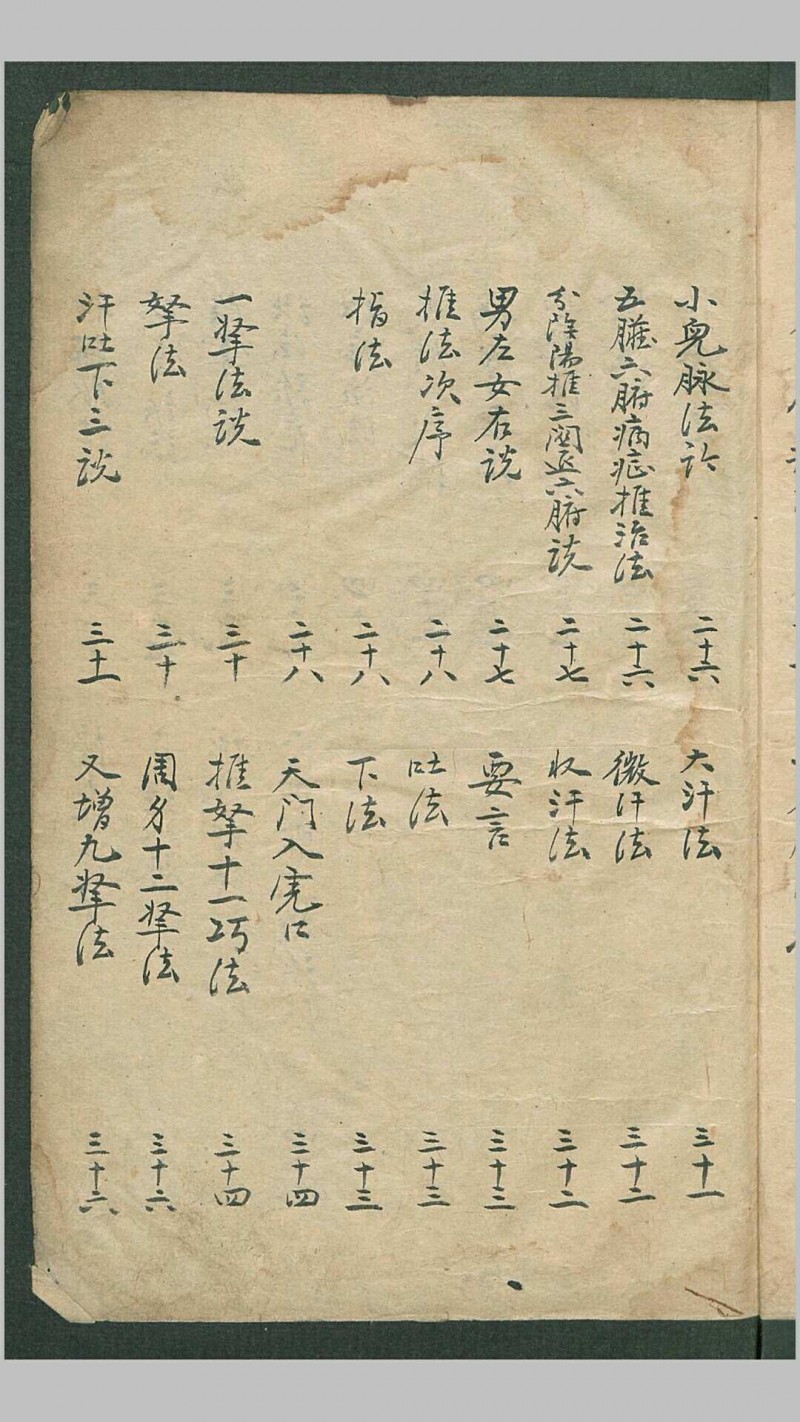 小兒脉法訣 二十六
五臟六腑病症推治法 二十六
分陰陽推三関退六腑説 二十七
男左女右説 二十七
推法次序 二十八
指法 二十八
二十八
一拏法説 三十
拏法 三十
汗吐下三説 三十一
大汗法 三十一
微汗法 三十二
收汗法 三十二
要言 三十三
吐法 三十三
下法 三十三
天门入虎口 三十四
推拏十一巧法 三十四
周身十二拏法 三十六
又增九拏法 三十六